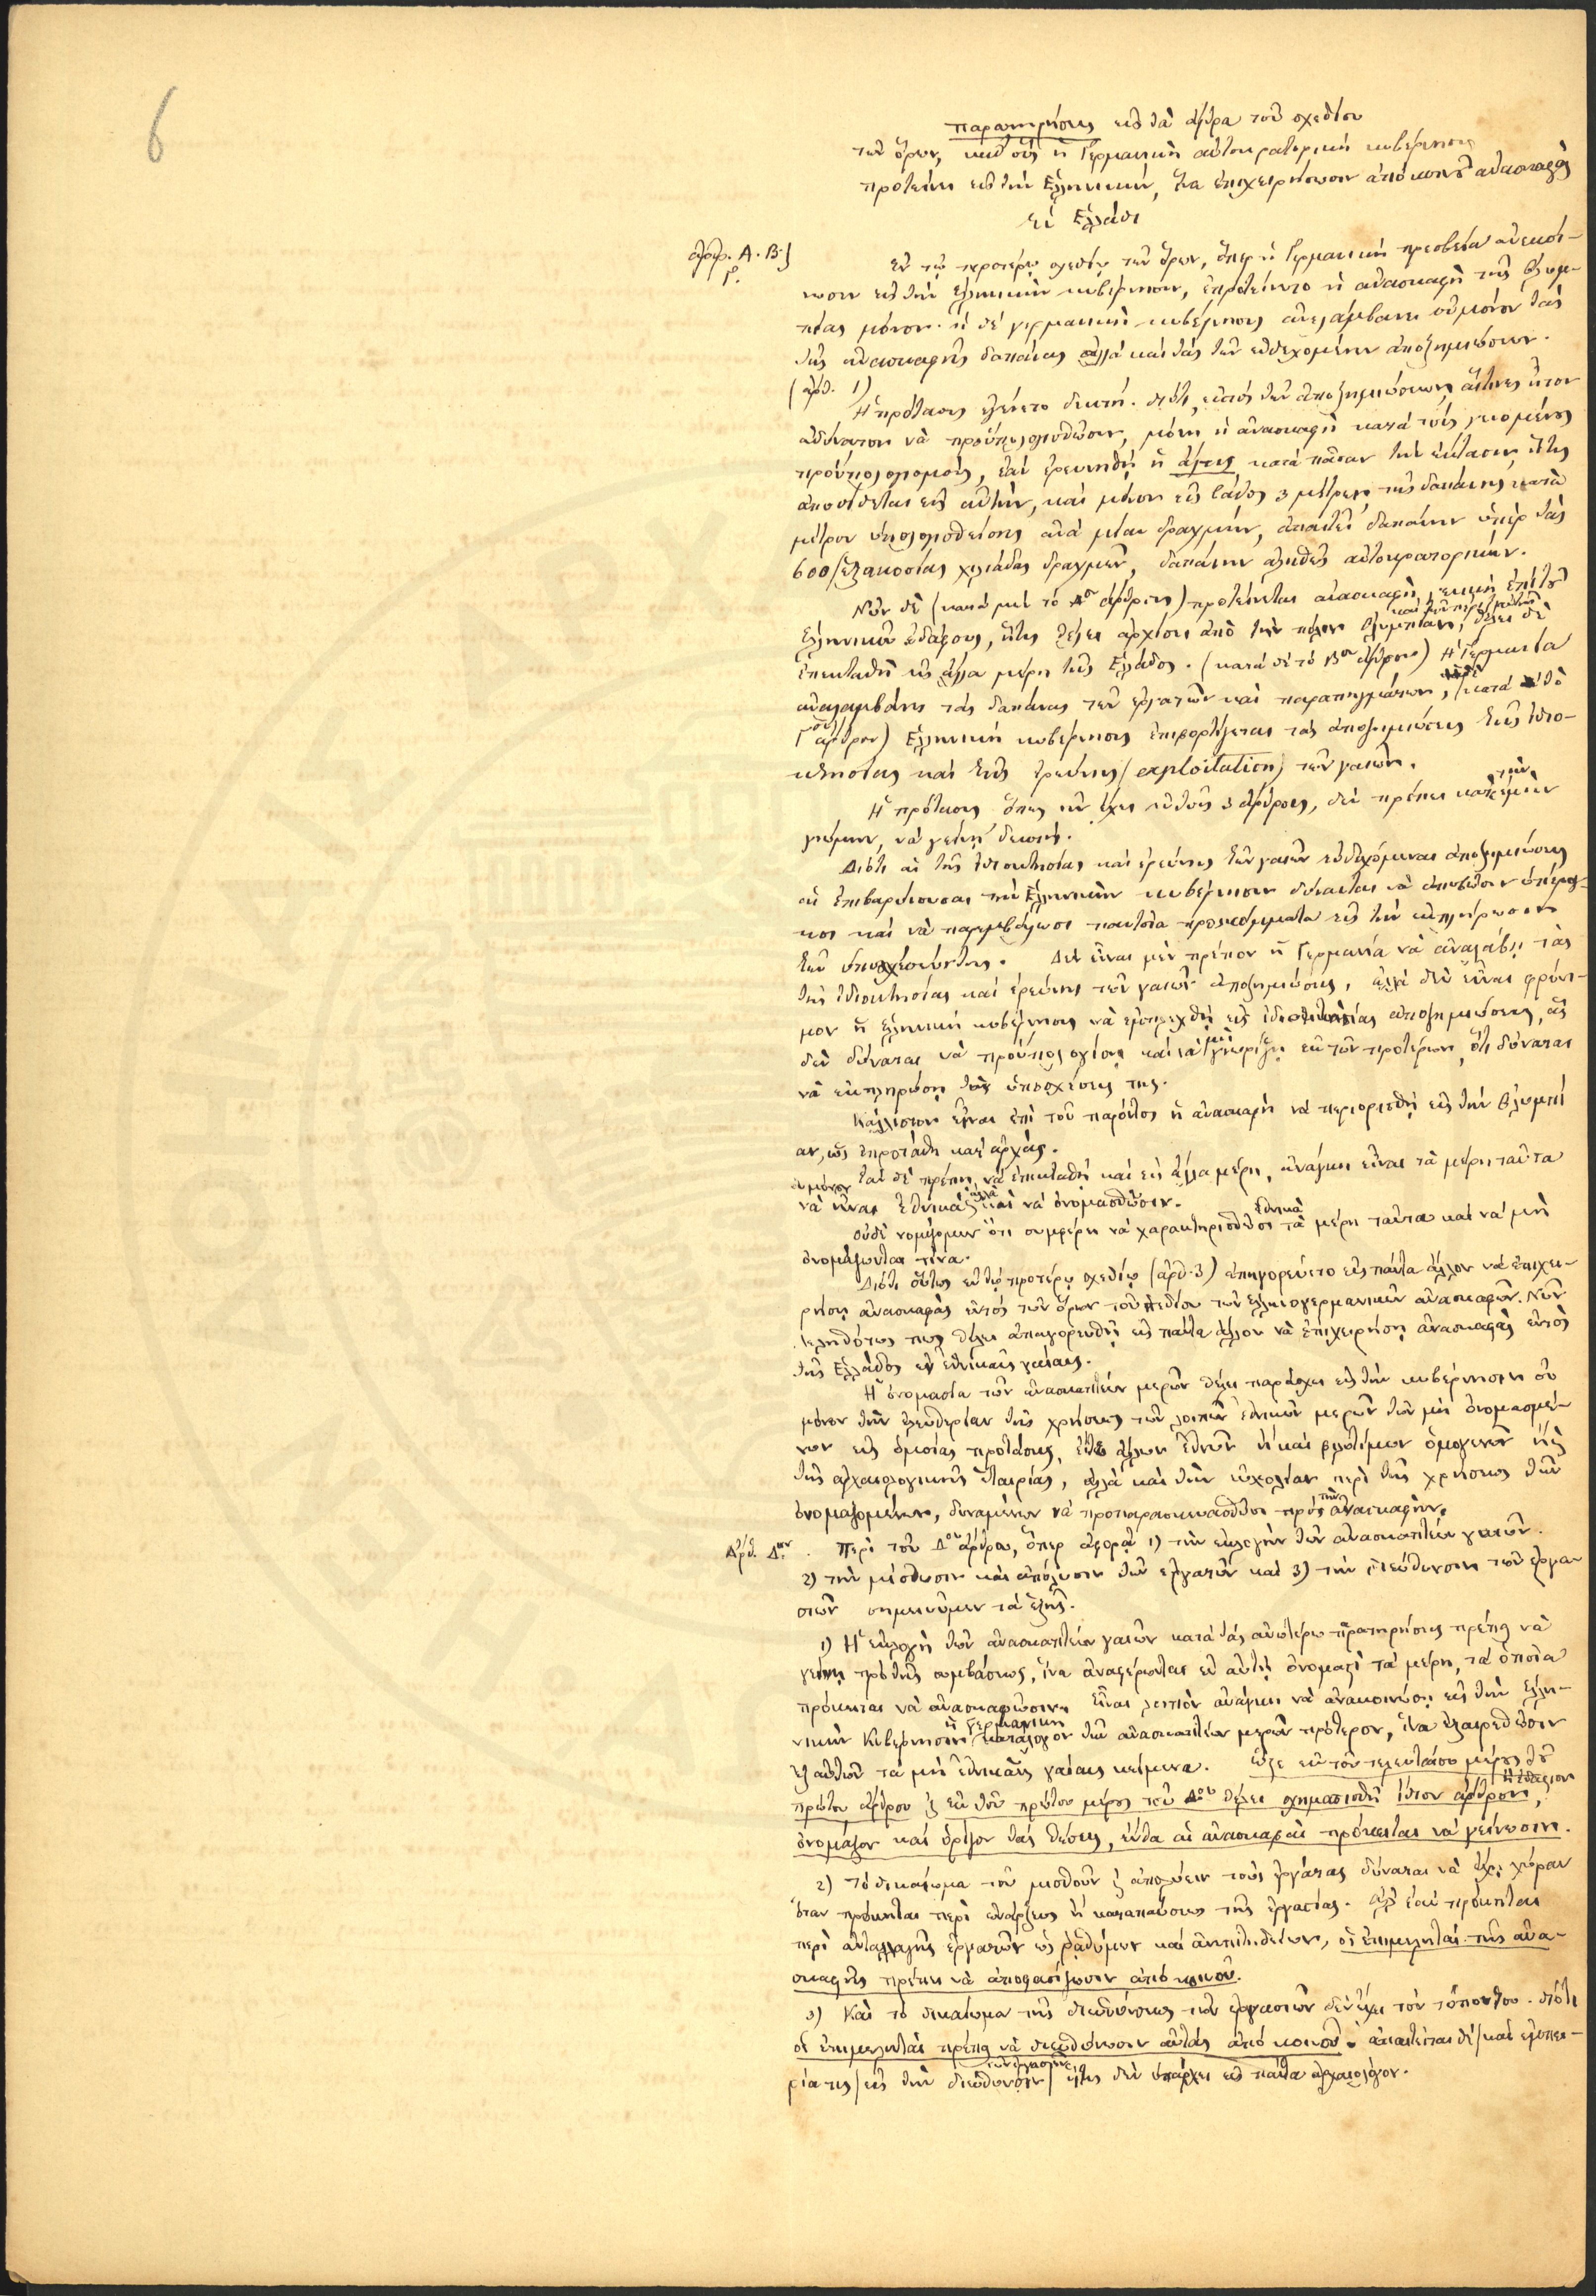 6
Παρατηρήσεις εἰς τὰ ἄρθρα τοῦ σχεδίου
τῶν ὅρων, καθ' οὓς ἡ Γερμανικὴ αὐτοκρατορικὴ κυβέρνησις
προτείνει εἰς τὴν Ἑλληνικήν, ἵνα ἐπιχειρήσωσιν ἀπὸ κοινοῦ ἀνασκαφὰς
ἐν Ἑλλάδι
ἄρθρ. Α. Β. ϗ
Γ.
Ἐν τῷ προτέρῳ σχεδίῳ τῶν ὅρων, ὅπερ ἡ Γερμανικὴ πρεσβεία ἀνεκοί-
νωσεν εἰς τὴν Ἑλληνικὴν κυβέρνησιν, ἐπροτείνετο ἡ ἀνασκαφὴ τῆς Ὀλυμ-
πίας μόνον· ἡ δὲ γερμανικὴ κυβέρνησις ἀνελάμβανε οὐ μόνον τὰς
τῆς ἀνασκαφῆς δαπάνας ἀλλὰ καὶ τὰς τῶν ἐνδεχομένων ἀποζημιώσεων.
(ἄρθ. 1)
Ἡ πρότασις ἐγένετο δεκτή· διότι, ἐκτὸς τῶν ἀποζημιώσεων, αἵτινες ἦτον
ἀδύνατον νὰ προϋπολογισθῶσιν, μόνη ἡ ἀνασκαφὴ κατὰ τοὺς γενομένους
προϋπολογισμούς, ἐὰν ἐρευνηθῇ ἡ Ἄλτις κατὰ πᾶσαν τὴν ἔκτασιν, ἥτις
ἀποδίδεται εἰς αὐτήν, καὶ μόνον εἰς βάθος 3 μέτρων, τῆς δαπάνης κατὰ
μέτρον ὑπολογισθείσης ἀνὰ μίαν δραχμήν, ἀπαιτεῖ δαπάνην ὑπὲρ τὰς
600/ἑξακοσίας χιλιάδας δραχμῶν, δαπάνην ἀληθῶς αὐτοκρατορικήν.
Νῦν δὲ (κατὰ μὲν τὸ Αον ἄρθρον) προτείνεται ἀνασκαφὴ γενικὴ ἐπὶ τοῦ
Ἑλληνικοῦ ἐδάφους, ἥτις θέλει ἀρχίσει ἀπὸ τὴν πάλαι Ὀλυμπίαν, θέλει δὲ
ἐπεκταθῆ εἰς ἄλλα μέρη τῆς Ἑλλάδος. (κατὰ δὲ τὸ Βον ἄρθρον) Ἡ Γερμανία
ἀναλαμβάνει τὰς δαπάνας τῶν ἐργατῶν καὶ παραπηγμάτων, ἡ δὲ (κατὰ τὸ
Γον ἄρθρον) Ἑλληνικὴ κυβέρνησις ἐπιφορτίζεται τὰς ἀποζημιώσεις τῆς ἰδιο-
κτησίας καὶ τῆς ἐρεύνης (exploitation) τῶν γαιῶν.
Ἡ πρότασις ὅπως νῦν ἔχει ἐν τοῖς 3 ἄρθροις, δὲν πρέπει κατὰ τὴν ἐμὴν
γνώμην, νὰ γείνῃ δεκτή.
Διότι αἱ τῆς ἰδιοκτησίας καὶ ἐρεύνης τῶν γαιῶν ἐνδεχόμεναι ἀποζημιώσεις
αἱ ἐπιβαρύνουσαι τὴν Ἑλληνικὴν κυβέρνησιν δύνανται νὰ ἀποβῶσιν ὑπέρογ-
κοι καὶ νὰ παρεμβάλωσι παντοῖα προσκόμματα εἰς τὴν ἐκπλήρωσιν
τῶν ὑποσχέσεών της. Δὲν εἶναι μὲν πρέπον ἡ Γερμανία νὰ ἀναλάβῃ τὰς
τῆς ἰδιοκτησίας καὶ ἐρεύνης τῶν γαιῶν ἀποζημιώσεις, ἀλλὰ δὲν εἶναι φρόνι-
μον ἡ Ἑλληνικὴ κυβέρνησις νὰ ἐμπλεχθῇ εἰς ἰδιοκτησίας ἀποζημιώσεις, ἃς
δὲν δύναται νὰ προϋπολογίσῃ καὶ νὰ μὴ γνωρίζῃ ἐκ τῶν προτέρων ὅτι δύναται
νὰ ἐκπληρώσῃ τὰς ὑποσχέσεις της.
Κάλλιστον εἶναι ἐπὶ τοῦ παρόντος ἡ ἀνασκαφὴ νὰ περιορισθῇ εἰς τὴν Ὀλυμπί
αν, ὡς ἐπροτάθη κατ' ἀρχάς.
Ἐὰν δὲ πρέπῃ νὰ ἐπεκταθῇ καὶ εἰς ἄλλα μέρη, ἀνάγκη εἶναι τὰ μέρη ταῦτα
οὐ μόνον νὰ εἶναι ἐθνικὰ ἀλλὰ καὶ νὰ ὀνομασθῶσιν.
Οὐδὲ νομίζομεν ὅτι συμφέρει νὰ χαρακτηρισθῶσι ἐθνικὰ τὰ μέρη ταῦτα καὶ νὰ μὴ
ὀνομάζωνται τίνα.
Διότι οὕτως ἐν τῷ προτέρῳ σχεδίῳ (ἄρθ. 3) ἀπηγορεύετο εἰς πάντα ἄλλον νὰ ἐπιχει-
ρήσῃ ἀνασκαφὰς ἐντὸς τῶν ὅρων τοῦ πεδίου τῶν ἑλληνογερμανικῶν ἀνασκαφῶν. Νῦν
λεληθότως πως θέλει ἀπαγορευθῆ εἰς πάντα ἄλλον νὰ ἐπιχειρήσῃ ἀνασκαφὰς ἐντὸς
τῆς Ἑλλάδος ἐν ἐθνικαῖς γαίαις.
Ἡ ὀνομασία τῶν ἀνασκαπτέων μερῶν θέλει παράσχει εἰς τὴν κυβέρνησιν οὐ
μόνον τὴν ἐλευθερίαν τῆς χρήσεως τῶν λοιπῶν ἐθνικῶν μερῶν τῶν μὴ ὀνομασμέ-
νων εἰς ὁμοίας προτάσεις, εἴτε ἄλλων ἐθνῶν ἢ καὶ φιλοτίμων ὁμογενῶν ἢ ϗ
τῆς ἀρχαιολογικῆς ἑταιρίας, ἀλλὰ καὶ τὴν εὐκολίαν περὶ τῆς χρήσεως τῶν
ὀνομαζομένων, δυναμένων νὰ προπαρασκευασθῶσι πρὸς τὴν ἀνασκαφήν.
Ἄρθ. Δον. Περὶ τοῦ Δου ἄρθρου, ὅπερ ἀφορᾷ 1) τὴν ἐκλογὴν τῶν ἀνασκαπτέων γαιῶν.
2) τὴν μίσθωσιν καὶ ἀπόλυσιν τῶν ἐργατῶν καὶ 3) τὴν διεύθυνσιν τῶν ἐργα-
σιῶν σημειοῦμεν τὰ ἑξῆς.
1) Ἡ ἐκλογὴ τῶν ἀνασκαπτέων γαιῶν κατὰ τὰς ἀνωτέρω παρατηρήσεις πρέπει νὰ
γείνῃ πρὸ τῆς συμβάσεως, ἵνα ἀναφέρωνται ἐν αὐτῇ ὀνομαστὶ τὰ μέρη, τὰ ὁποῖα
πρόκειται νὰ ἀνασκαφῶσιν. Εἶναι λοιπὸν ἀνάγκη νὰ ἀνακοινώσῃ εἰς τὴν Ἑλλη-
νικὴν Κυβέρνησιν ἡ Γερμανικὴ κατάλογον τῶν ἀνασκαπτέων μερῶν πρότερον, ἵνα ἐξαιρεθῶσιν
ἐξ αὐτῶν τὰ μὴ ἐθνικαῖς γαίαις κείμενα. ὥστε ἐκ τοῦ τελευταίου μέρους τοῦ
πρώτου ἄρθρου ϗ ἐκ τοῦ πρώτου μέρους τοῦ Δου θέλει σχηματισθῆ ἴδιον ἄρθρον,
ὀνομάζον καὶ ὁρίζον τὰς θέσεις, ἔνθα αἱ ἀνασκαφαὶ πρόκειται νὰ γείνωσιν.
2) Τὸ δικαίωμα τοῦ μισθοῦν ϗ ἀπολύειν τοὺς ἐργάτας δύναται νὰ ἔχῃ χώραν
ὅταν πρόκηται περὶ ἐνάρξεως ἢ καταπαύσεως τῆς ἐργασίας. Ἀλλ' ἐὰν πρόκηται
περὶ ἀνταλλαγῆς ἐργατῶν ὡς ῥᾳθύμων καὶ ἀνεπιτηδείων, οἱ ἐπιμεληταὶ τῆς ἀνα-
σκαφῆς πρέπει νὰ ἀποφασίζωσιν ἀπὸ κοινοῦ.
3) Καὶ τὸ δικαίωμα τῆς διευθύνσεως τῶν ἐργασιῶν δὲν ἔχει τὸν τόπον του· διότι
οἱ ἐπιμεληταὶ πρέπει νὰ διευθύνωσιν αὐτὰς ἀπὸ κοινοῦ. ἀπαιτεῖται δὲ καὶ ἐμπει-
ρία τις εἰς τὴν διεύθυνσιν τῶν ἐργασιῶν ἥτις δὲν ὑπάρχει εἰς πάντα ἀρχαιολόγον.